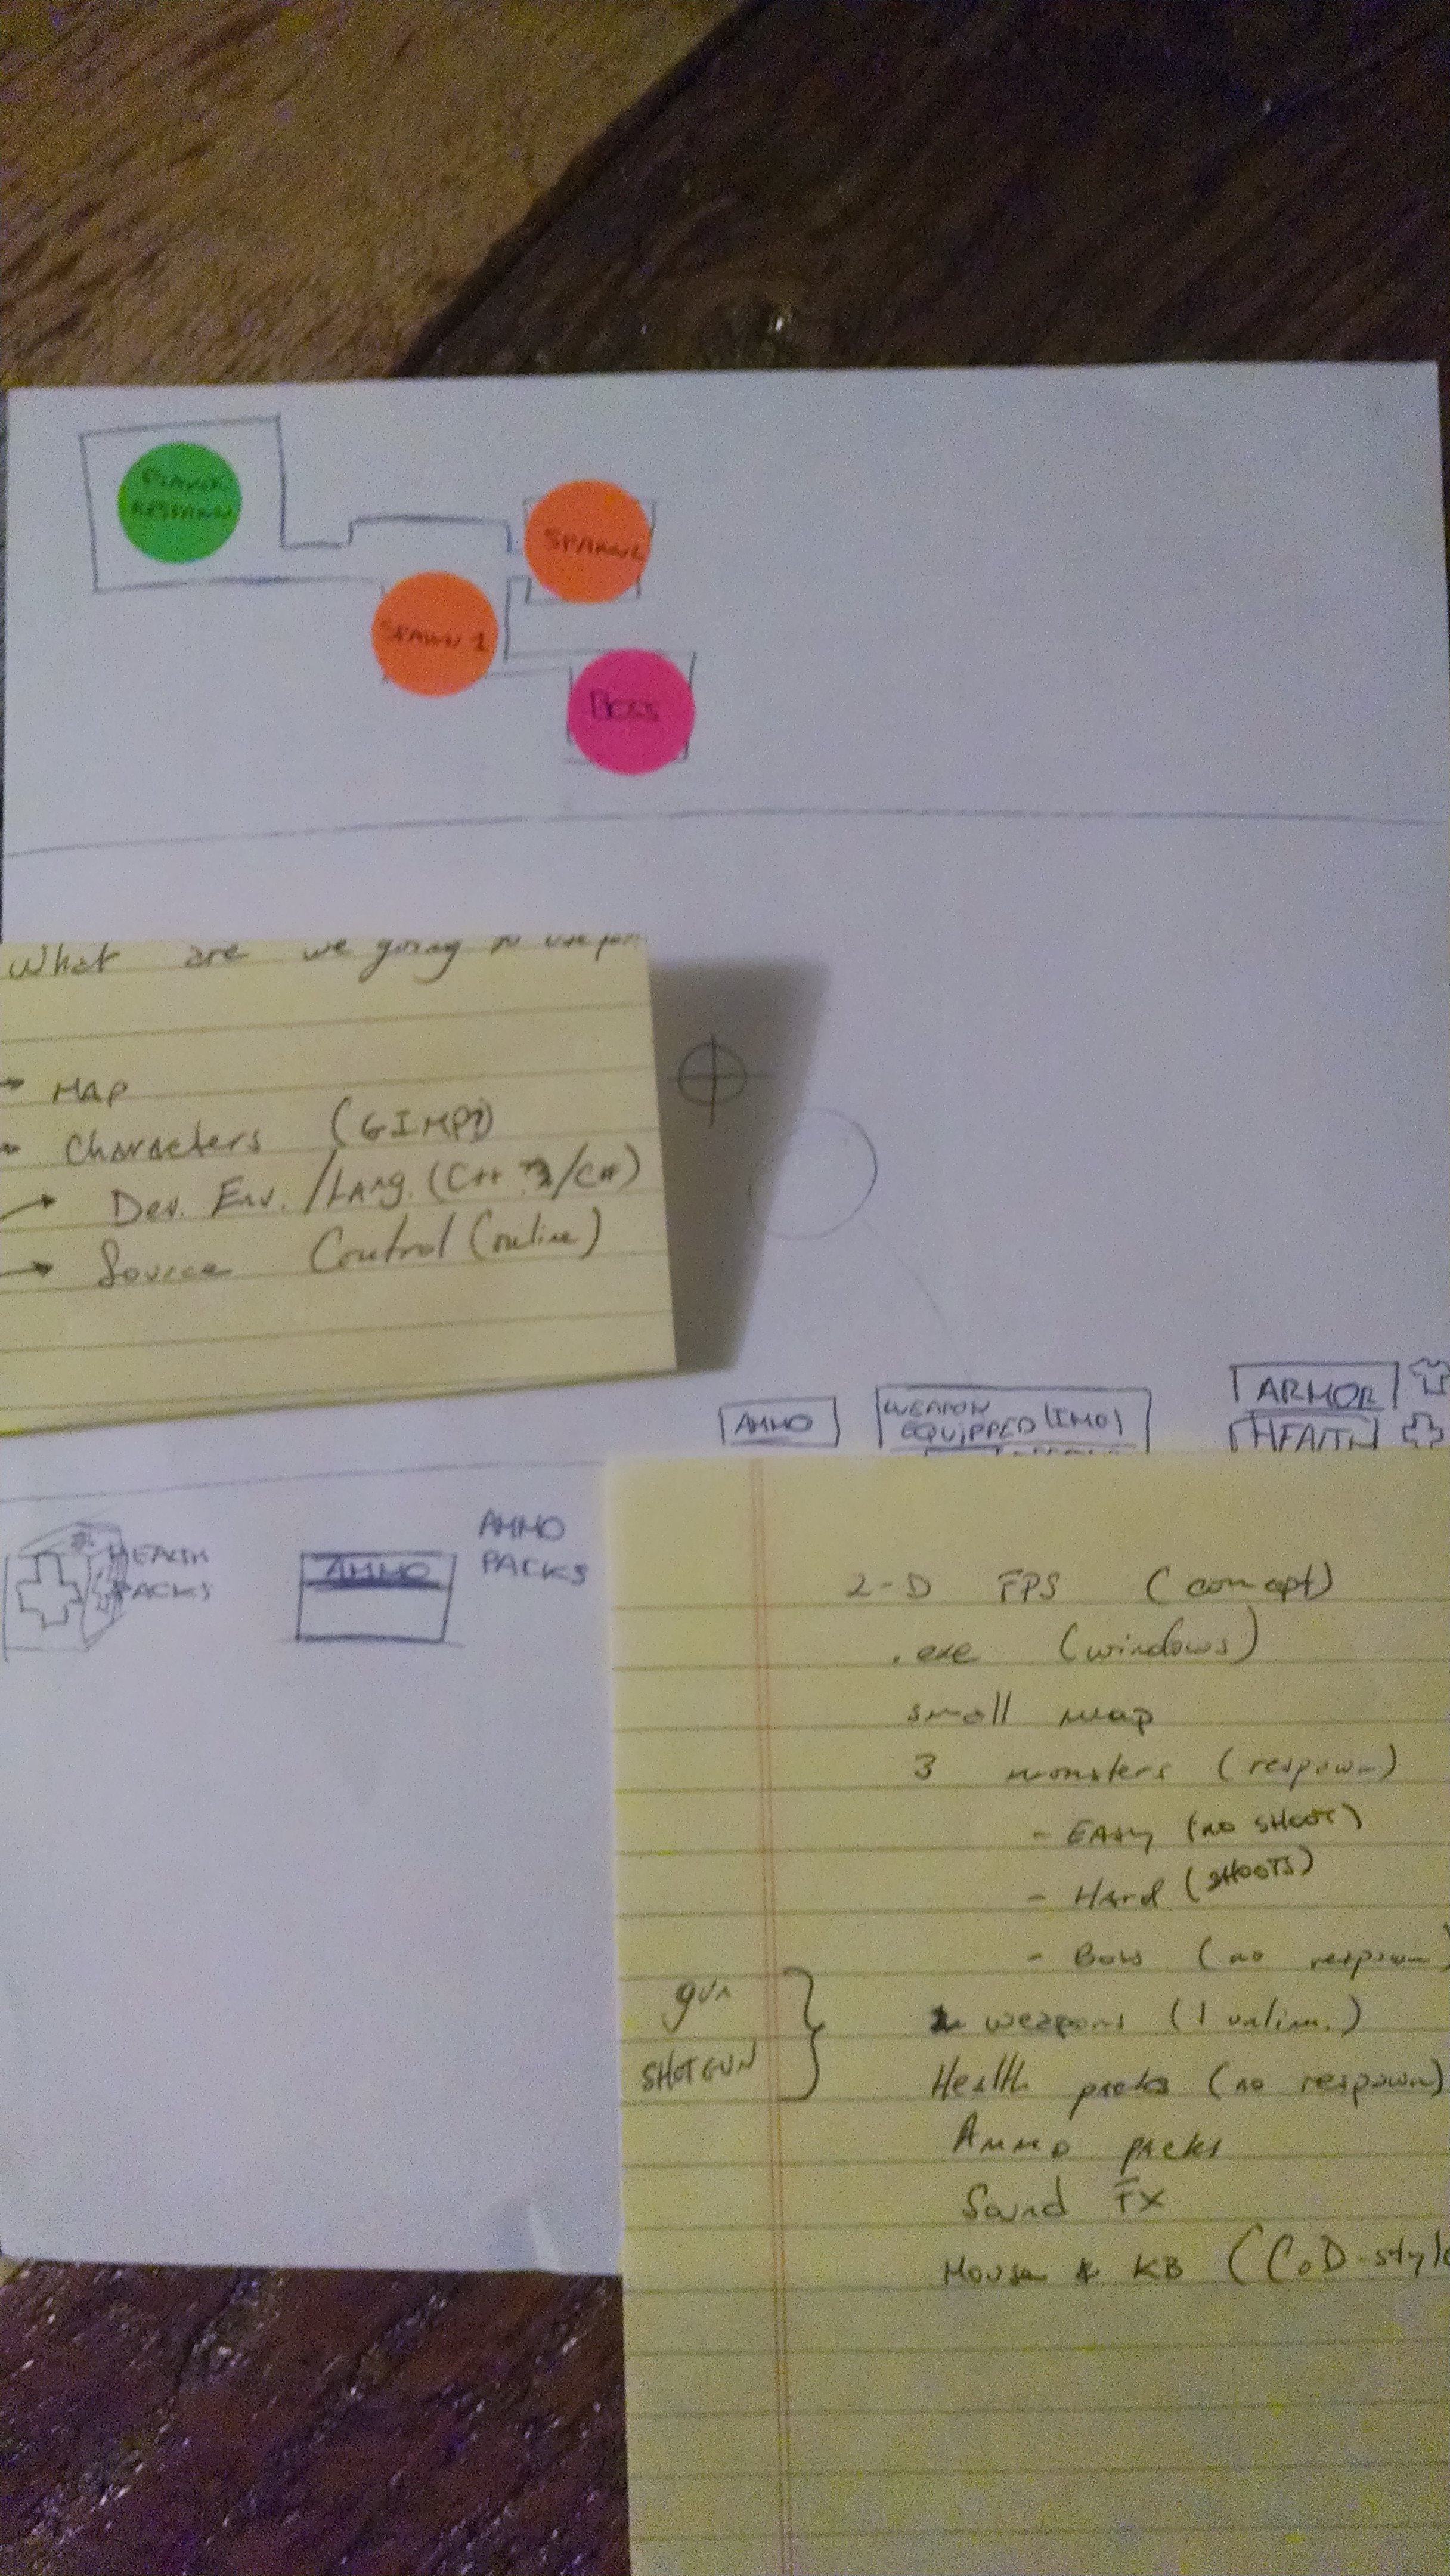 PLAYER
RESPAWN
SPAWN 2
SPAWN 1
BOSS
What are we going to use for
→ MAP
→ Characters (GIMP?)
→ Dev. Env. / Lang. (C++ ?/C#)
→ Source Control (online)
AMMO
WEAPON
EQUIPPED (IMO)
ARMOR
HEALTH
HEALTH
PACKS
AMMO
AMMO
PACKS
2-D FPS (concept)
.exe (windows)
small map
3 monsters (respawn)
- EASY (NO SHOOT)
- Hard (SHOOTS)
- Boss (no respawn)
gun
SHOTGUN
2 weapons (1 unlim.)
Health packs (no respawn)
Ammo packs
Sound FX
Mouse & KB (CoD-style